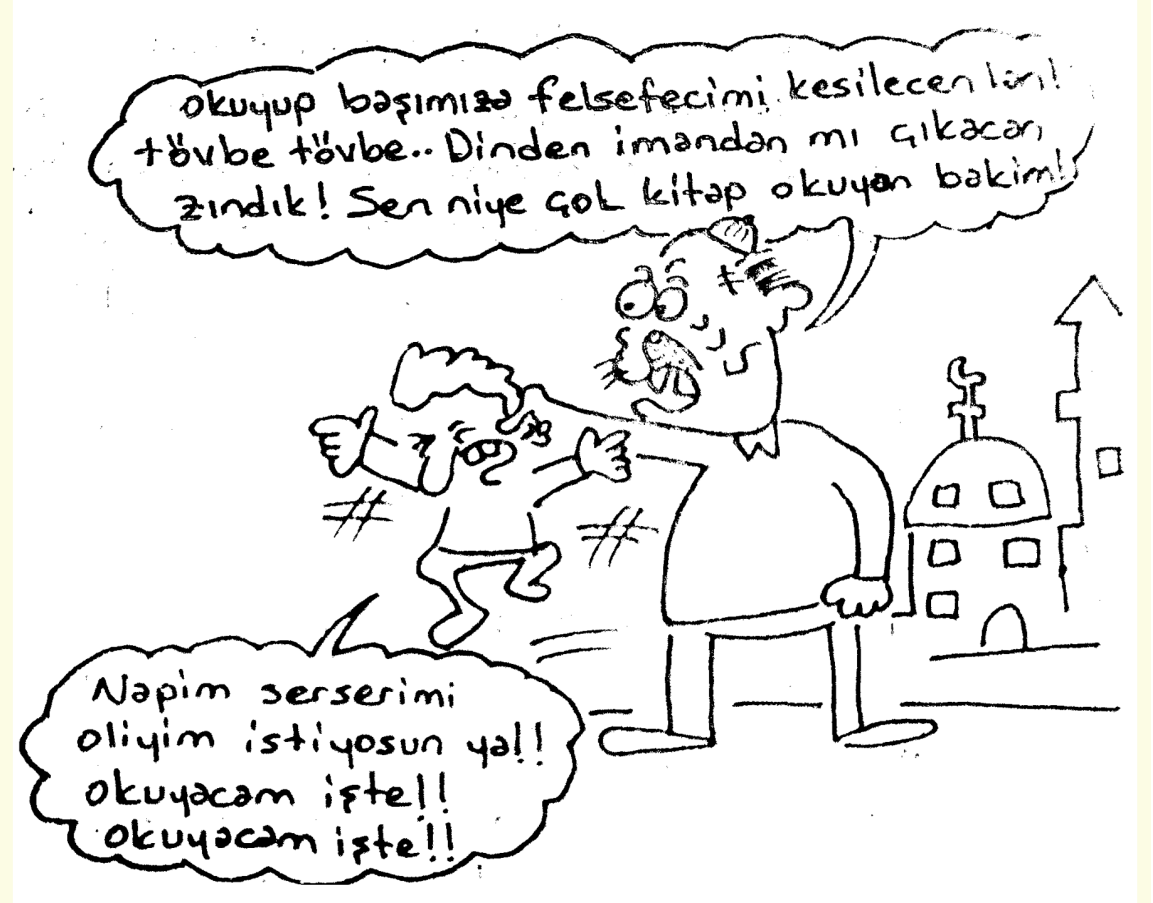 okuyup başımıza felsefecimi kesilecen lan!
tövbe tövbe.. Dinden imandan mı çıkacan
zındık! Sen niye çok kitap okuyon bakim!!
Napim serserimi
oliyim istiyosun ya!!
okuyacam işte!!
okuyacam işte!!